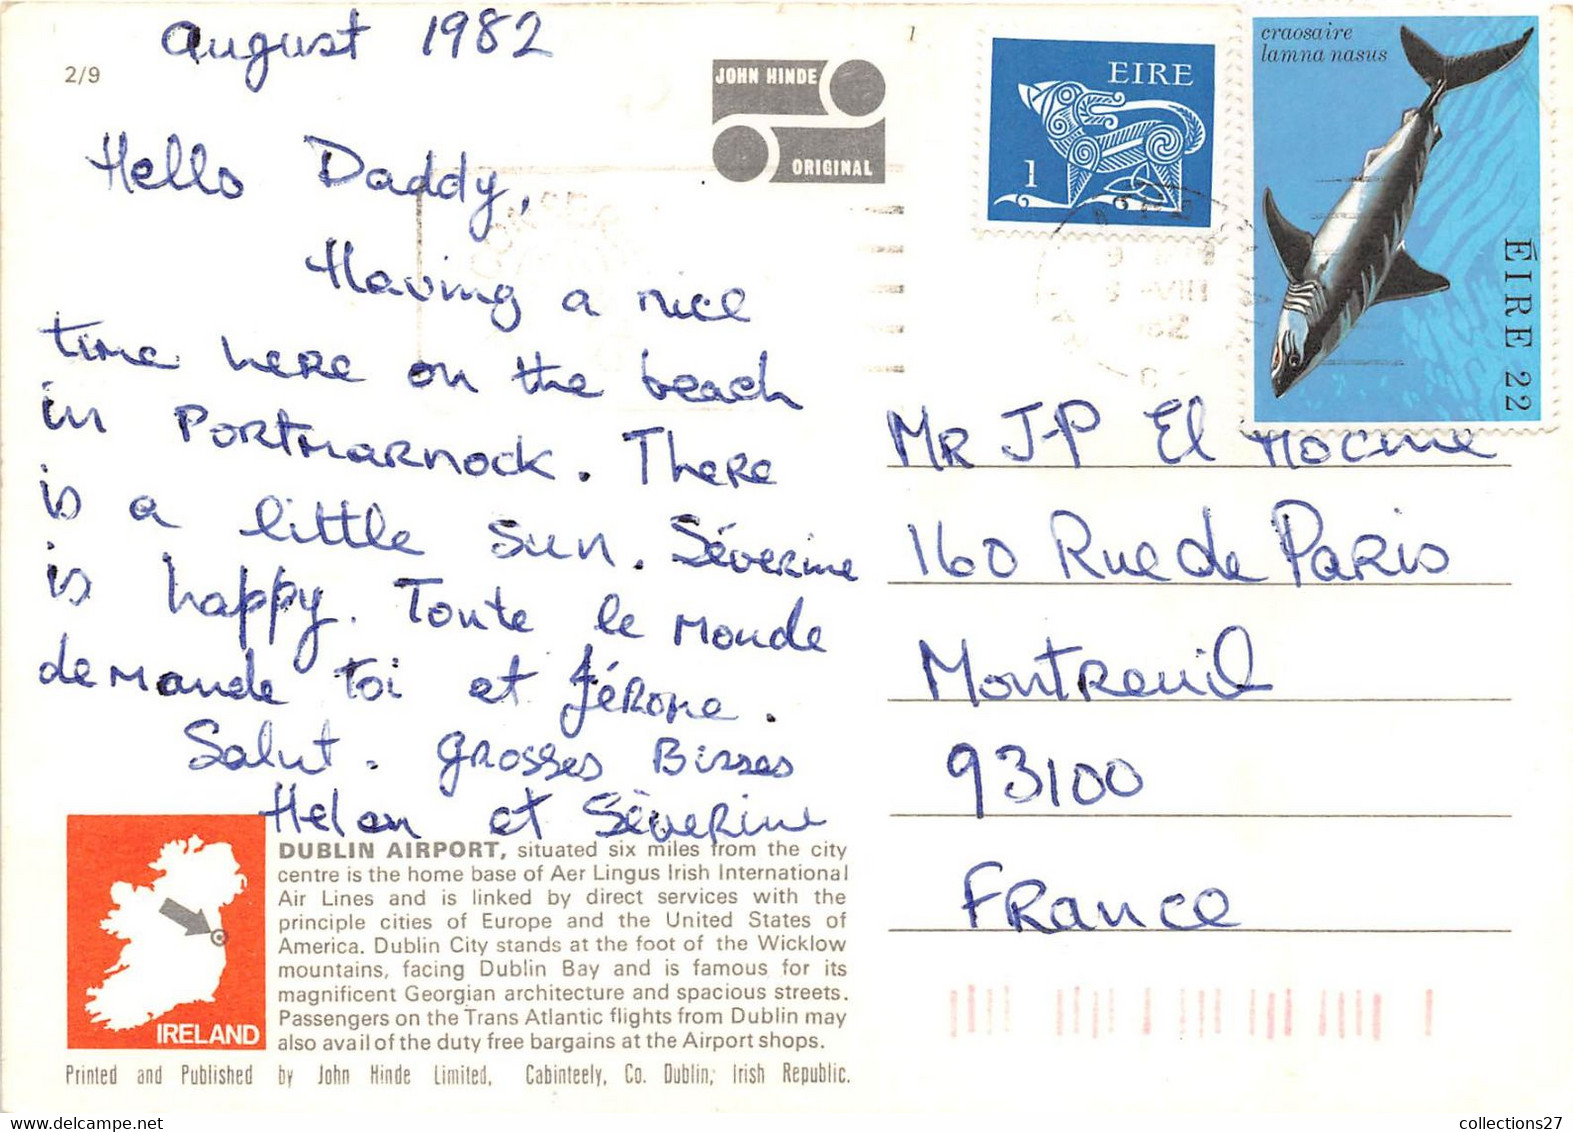 August 1982
2/9
JOHN HINDE
ORIGINAL
1
EIRE
1
craosaire
lamna nasus
ÉIRE 22
Hello Daddy,
Having a nice
time here on the beach
in Portmarnock. There
is a little sun. Séverine
is happy. Toute le monde
demande toi et Jérome.
Salut. grosses Bisses
Helen et Séverine
Mr J-P El Mocine
160 Rue de Paris
Montreuil
93100
France
IRELAND
DUBLIN AIRPORT, situated six miles from the city
centre is the home base of Aer Lingus Irish International
Air Lines and is linked by direct services with the
principle cities of Europe and the United States of
America. Dublin City stands at the foot of the Wicklow
mountains, facing Dublin Bay and is famous for its
magnificent Georgian architecture and spacious streets.
Passengers on the Trans Atlantic flights from Dublin may
also avail of the duty free bargains at the Airport shops.
Printed and Published by John Hinde Limited, Cabinteely, Co. Dublin, Irish Republic.
collections27
www.delcampe.net